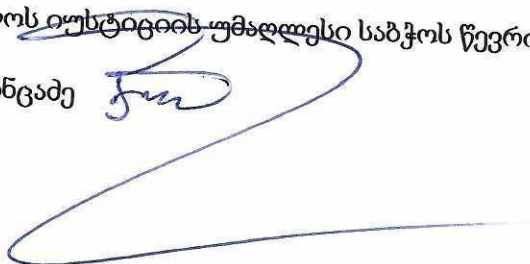 ოს იუსტიციის უმაღლესი საბჭოს წევრი
ანცაძე